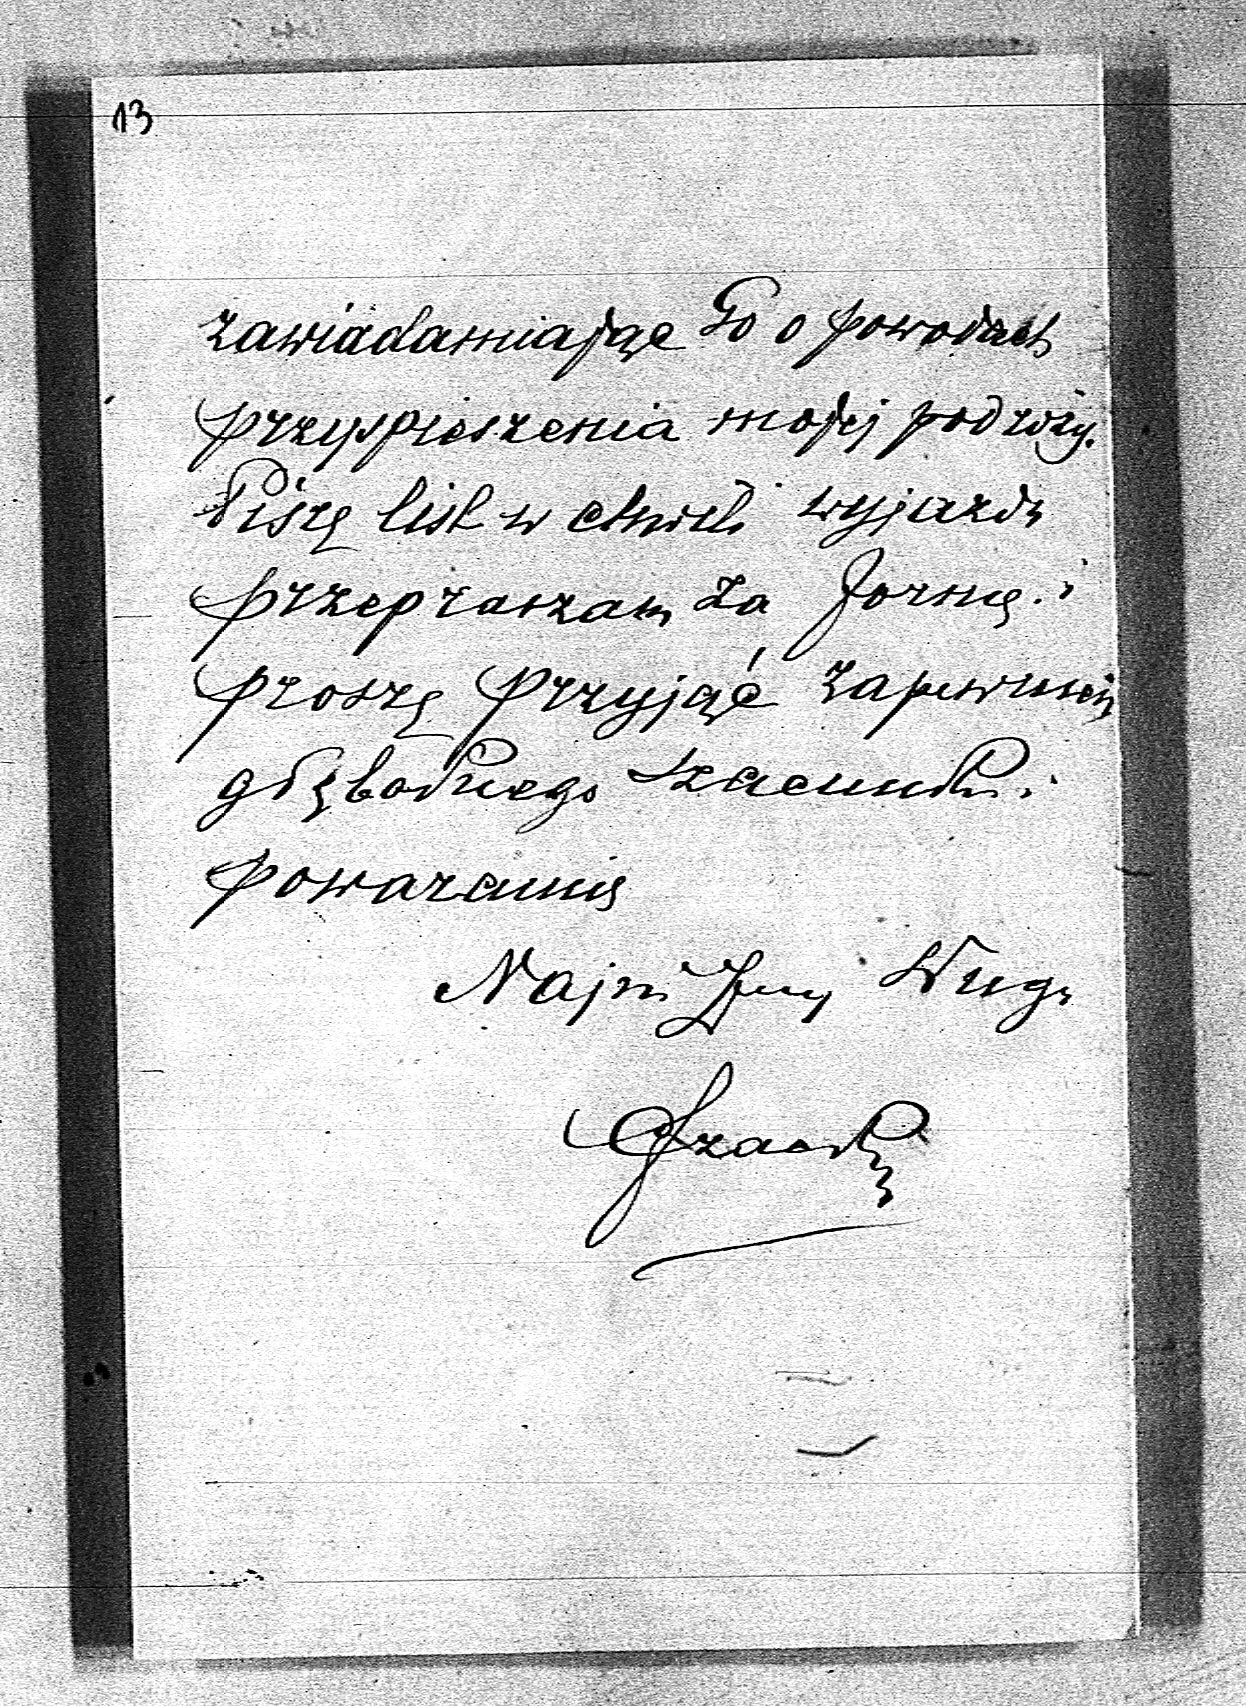 13
zawiadamiając Go o powodach
przyspieszenia mojej podróży.
Piszę list w chwili wyjazdu
przepraszam za formę i
proszę przyjąć zapewnień
głębokiego szacunku i
poważania
Najni sługa